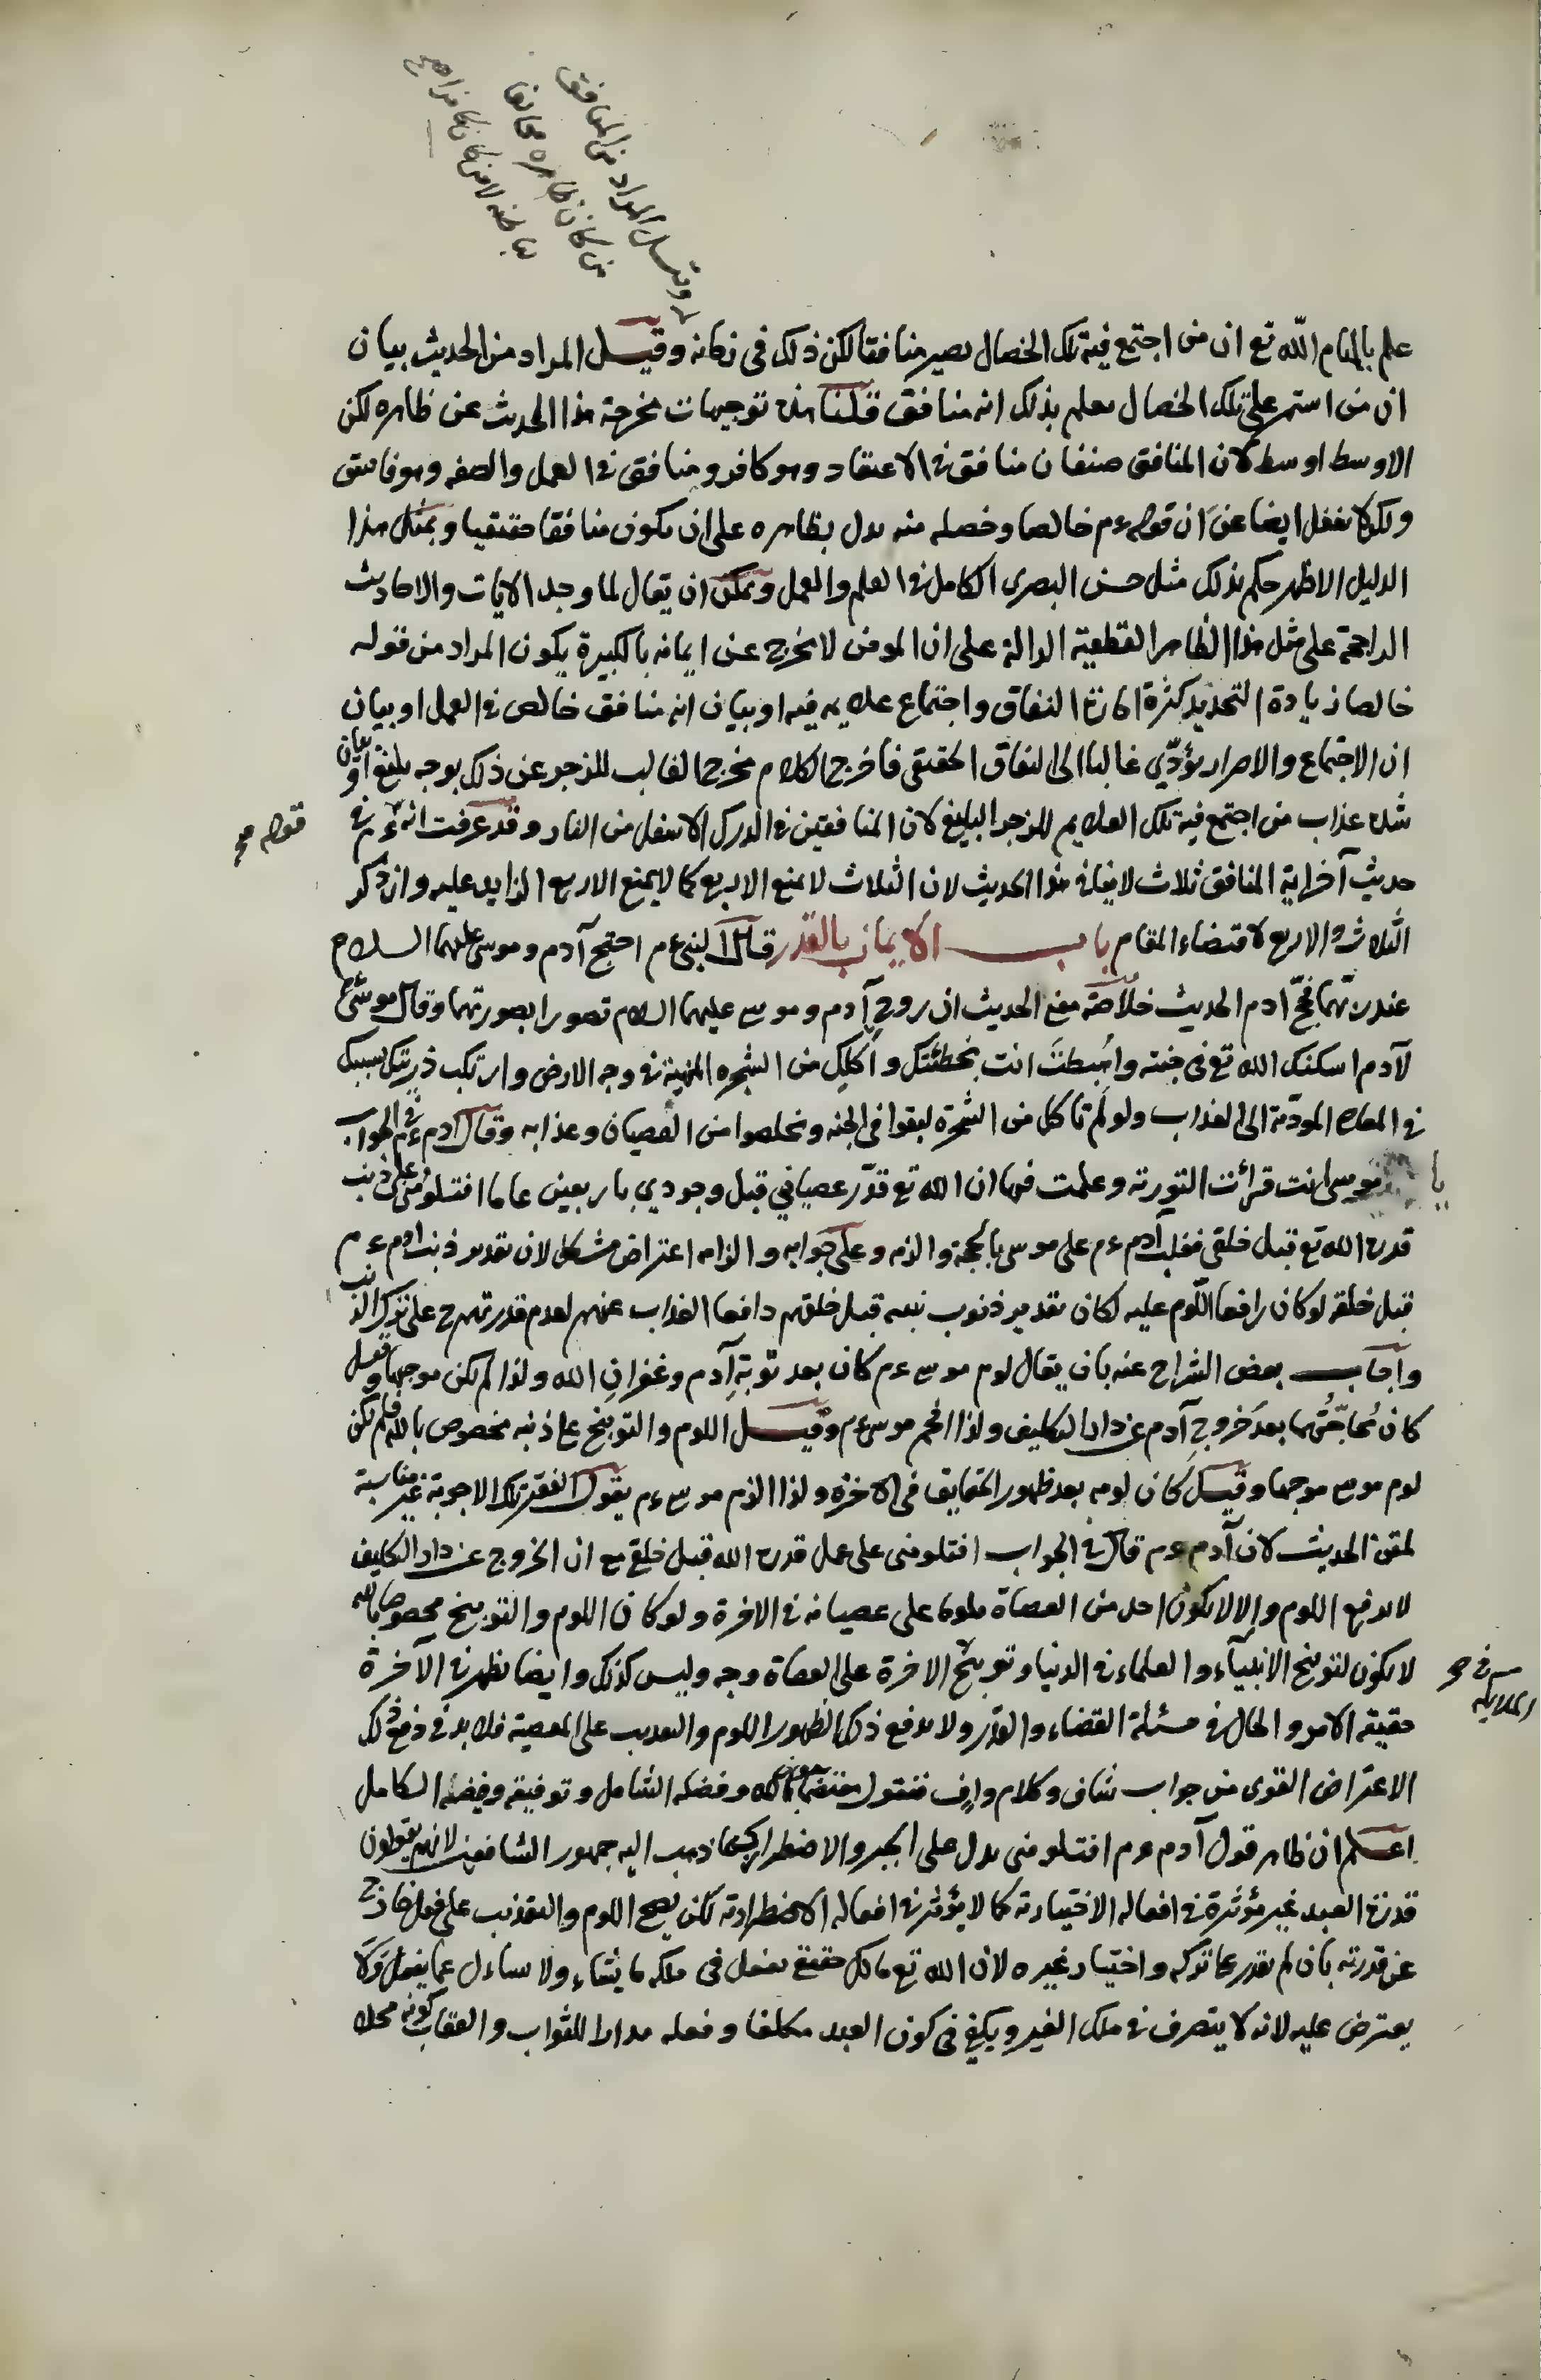 وقيل المراد من المنافق
من كان ظاهره مخالفا
باطنه لا من كان كافرا صح
علم بالهام الله تع ان من اجتمع فيه تلك الخصال يصير منافقا لكن ذلك فى زمانه وقيل المراد من الحديث بيان
ان من استمر على تلك الخصال يعلم بذلك انه منافق قلنا هذه توجيهات مخرجة هذا الحديث عن ظاهره لكن
الاوسط اوسط لان المنافق صنفان منافق فى الاعتقاد وهو كافر ومنافق فى العمل والصفه وهو فاسق
ولكن لا نغفل ايضا عن ان قوله ءم خالصا وخصله منه يدل بظاهره على ان يكون منافقا حقيقيا وبمثل هذا
الدليل الاظهر حكم بذلك مثل حسن البصرى الكامل فى العلم والعمل ويمكن ان يقال لما وجد الايات والاحاديث
الراجحة على مثل هذا الظاهر القطعية الدالة على ان المومن لا يخرج عن ايمانه بالكبيرة يكون المراد من قوله
خالصا زيادة التحديد كثرة امارة النفاق واجتماع علايمه فيه او بيان انه منافق خالص فى العمل او بيان
ان الاجتماع والاصرار يؤدّي غالبا الى النفاق الحقيقى فاخرج الكلام مخرج الغالب للزجر عن ذلك بوجه بليغ او بيان
شدة عذاب من اجتمع فيه تلك العلايم للزجر البليغ لان المنافقين فى الدرك الاسفل من النار وقد عرفت انه ءم فى
قوله صح
حديث آخر اية المنافق ثلاث لا ينافى هذا الحديث لان الثلاث لا يمنع الاربع كما لا يمنع الاربع الزايد عليه وان ذكر
الثلاث والاربع لاقتضاء المقام باب الايمان بالقدر قال النبى ءم احتج آدم وموسى عليهما السلام
عند ربّهما فحجّ ادم الحديث خلاصة معنى الحديث ان روح آدم وموسى عليهما السلام تصورا بصورتهما وقال موسى ءم
لآدم اسكنك الله تع فى جنته واهبطت انت بخطئتك واكلك من الشجره المنهية فى وجه الارض وارتكب ذريتك بسببك
فى المعاصى المودّية الى العذاب ولو لم تاكل من الشجرة لبقوا فى الجنه وتخلصوا من العصيان وعذابه وقال ادم ءم فى الجواب
يا موسى انت قرأت التورته وعلمت فيها ان الله تع قدّر عصياني قبل وجودي باربعين عاما افتلومنى على ذنب
قدره الله تع قبل خلقى فغلب آدم ءم على موسى بالحجة والزمه وعلى جوابه والزامه اعتراض مشكل لان تقدير ذنب ادم ءم
قبل خلقه لو كان رافعا اللّوم عليه لكان تقدير ذنوب بنيه قبل خلقهم دافعا العذاب عنهم لعدم قدرتهم ح على ترك الذنب
واجاب بعض الشراح عنه بان يقال لوم موسى ءم كان بعد توبة آدم وغفران الله ولذا لم يكن موجها وقيل
كان مُحاجّتُهما بعد خروج آدم عن دار التكليف ولذا افحم موسى ءم وقيل اللوم والتوبيخ على ذنبه مخصوص بالله فلم يكن
لوم موسى موجها وقيل كان لومه بعد ظهور الحقايق فى الاخرة ولذا الزم موسى ءم يقول الفقير تلك الاجوبة غير مناسبة
لمتن الحديث لان آدم ءم قال فى الجواب افتلومنى على عمل قدره الله قبل خلقى مع ان الخروج عن دار التكليف
لا يدفع اللوم والا لا يكون احد من العصاة ملوما على عصيانه فى الاخرة ولو كان اللوم والتوبيخ مخصوصا بالله
لا يكون لتوبيخ الانبياء والعلماء فى الدنيا وتوبيخ الاخرة على العصاة وجه وليس كذلك وايضا يظهر فى الآخرة
الملايكة فى صح
حقيقة الامر والحال فى مسئلة القضاء والقدر ولا يدفع ذلك الظهور اللوم والتعذيب على المعصية فلا بد فى دفع ذلك
الاعتراض القوى من جواب شاف وكلام واف فنقول مقتضيا بعون الله وفضله الشامل وتوفيقه وفيضه الكامل
اعلم ان ظاهر قول آدم ءم افتلومنى يدل على الجبر والاضطرار كما ذهب اليه جمهور الشافعية لانهم يقولون
قدرة العبد غير مؤثرة فى افعاله الاختيارية كما لا يؤثر فى افعاله الاضطرارية لكن يصح اللوم والتعذيب على فعل خارج
عن قدرته بان لم يقدر على تركه واختيار غيره لان الله تع مالك حقيقى يفعل فى ملكه ما يشاء ولا يساءل عما يفعل ولا
يعترض عليه لانه لا يتصرف فى ملك الغير ويكفي فى كون العبد مكلفا وفعله مدارا للثواب والعقاب كونه محلا